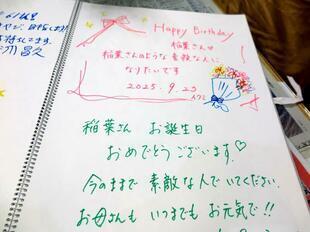 Happy Birthday
稲葉さんの
稲葉さんのような素敵な人に
なりたいです
2025.9.23
稲葉さん お誕生日
おめでとうございます♡
今のままで素敵な人でいてください
お母さんもいつまでもお元気で!!